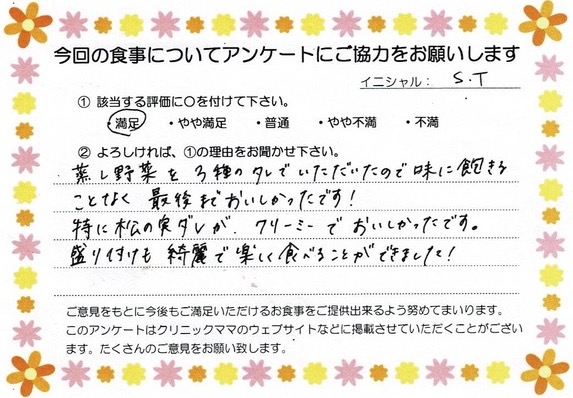 今回の食事についてアンケートにご協力をお願いします
イニシャル： S.T
① 該当する評価に○を付けて下さい。
・満足 ・やや満足 ・普通 ・やや不満 ・不満
② よろしければ、①の理由をお聞かせ下さい。
蒸し野菜を3種のタレでいただいたので味に飽きる
ことなく 最後までおいしかったです!
特に松の実ダレが、クリーミーでおいしかったです。
盛り付けも綺麗で楽しく食べることができました!
ご意見をもとに今後もご満足いただけるお食事をご提供出来るよう努めてまいります。
このアンケートはクリニックママのウェブサイトなどに掲載させていただくことがござい
ます。たくさんのご意見をお願い致します。